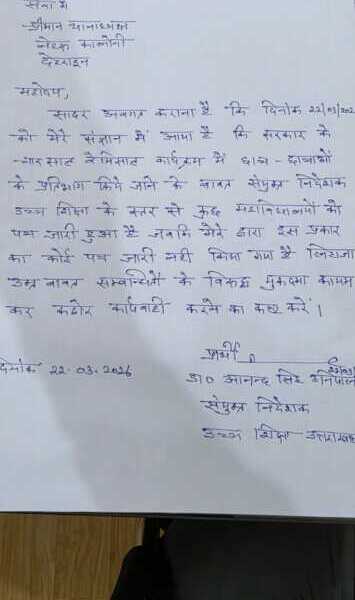 सेवा में
श्रीमान थानाध्यक्ष
नेहरू कालोनी
देहरादून
महोदय,
सादर अवगत कराना है कि दिनांक 22/03/202
को मेरे संज्ञान में आया है कि सरकार के
चार साल बेमिसाल कार्यक्रम में छात्र-छात्राओं
के प्रतिभाग किये जाने के बावत संयुक्त निदेशक
उच्च शिक्षा के स्तर से कुछ महाविद्यालयों को
पत्र जारी हुआ है जबकि मेरे द्वारा इस प्रकार
का कोई पत्र जारी नहीं किया गया है लिहाजा
उक्त बावत सम्बन्धितों के विरूद्ध मुकदमा कायम
कर कठोर कार्यवाही करने का कष्ट करें।
प्रार्थी
दिनांक 22-03-2026
डा० आनन्द सिंह उनियाल
संयुक्त निदेशक
उच्च शिक्षा उत्तराखण्ड